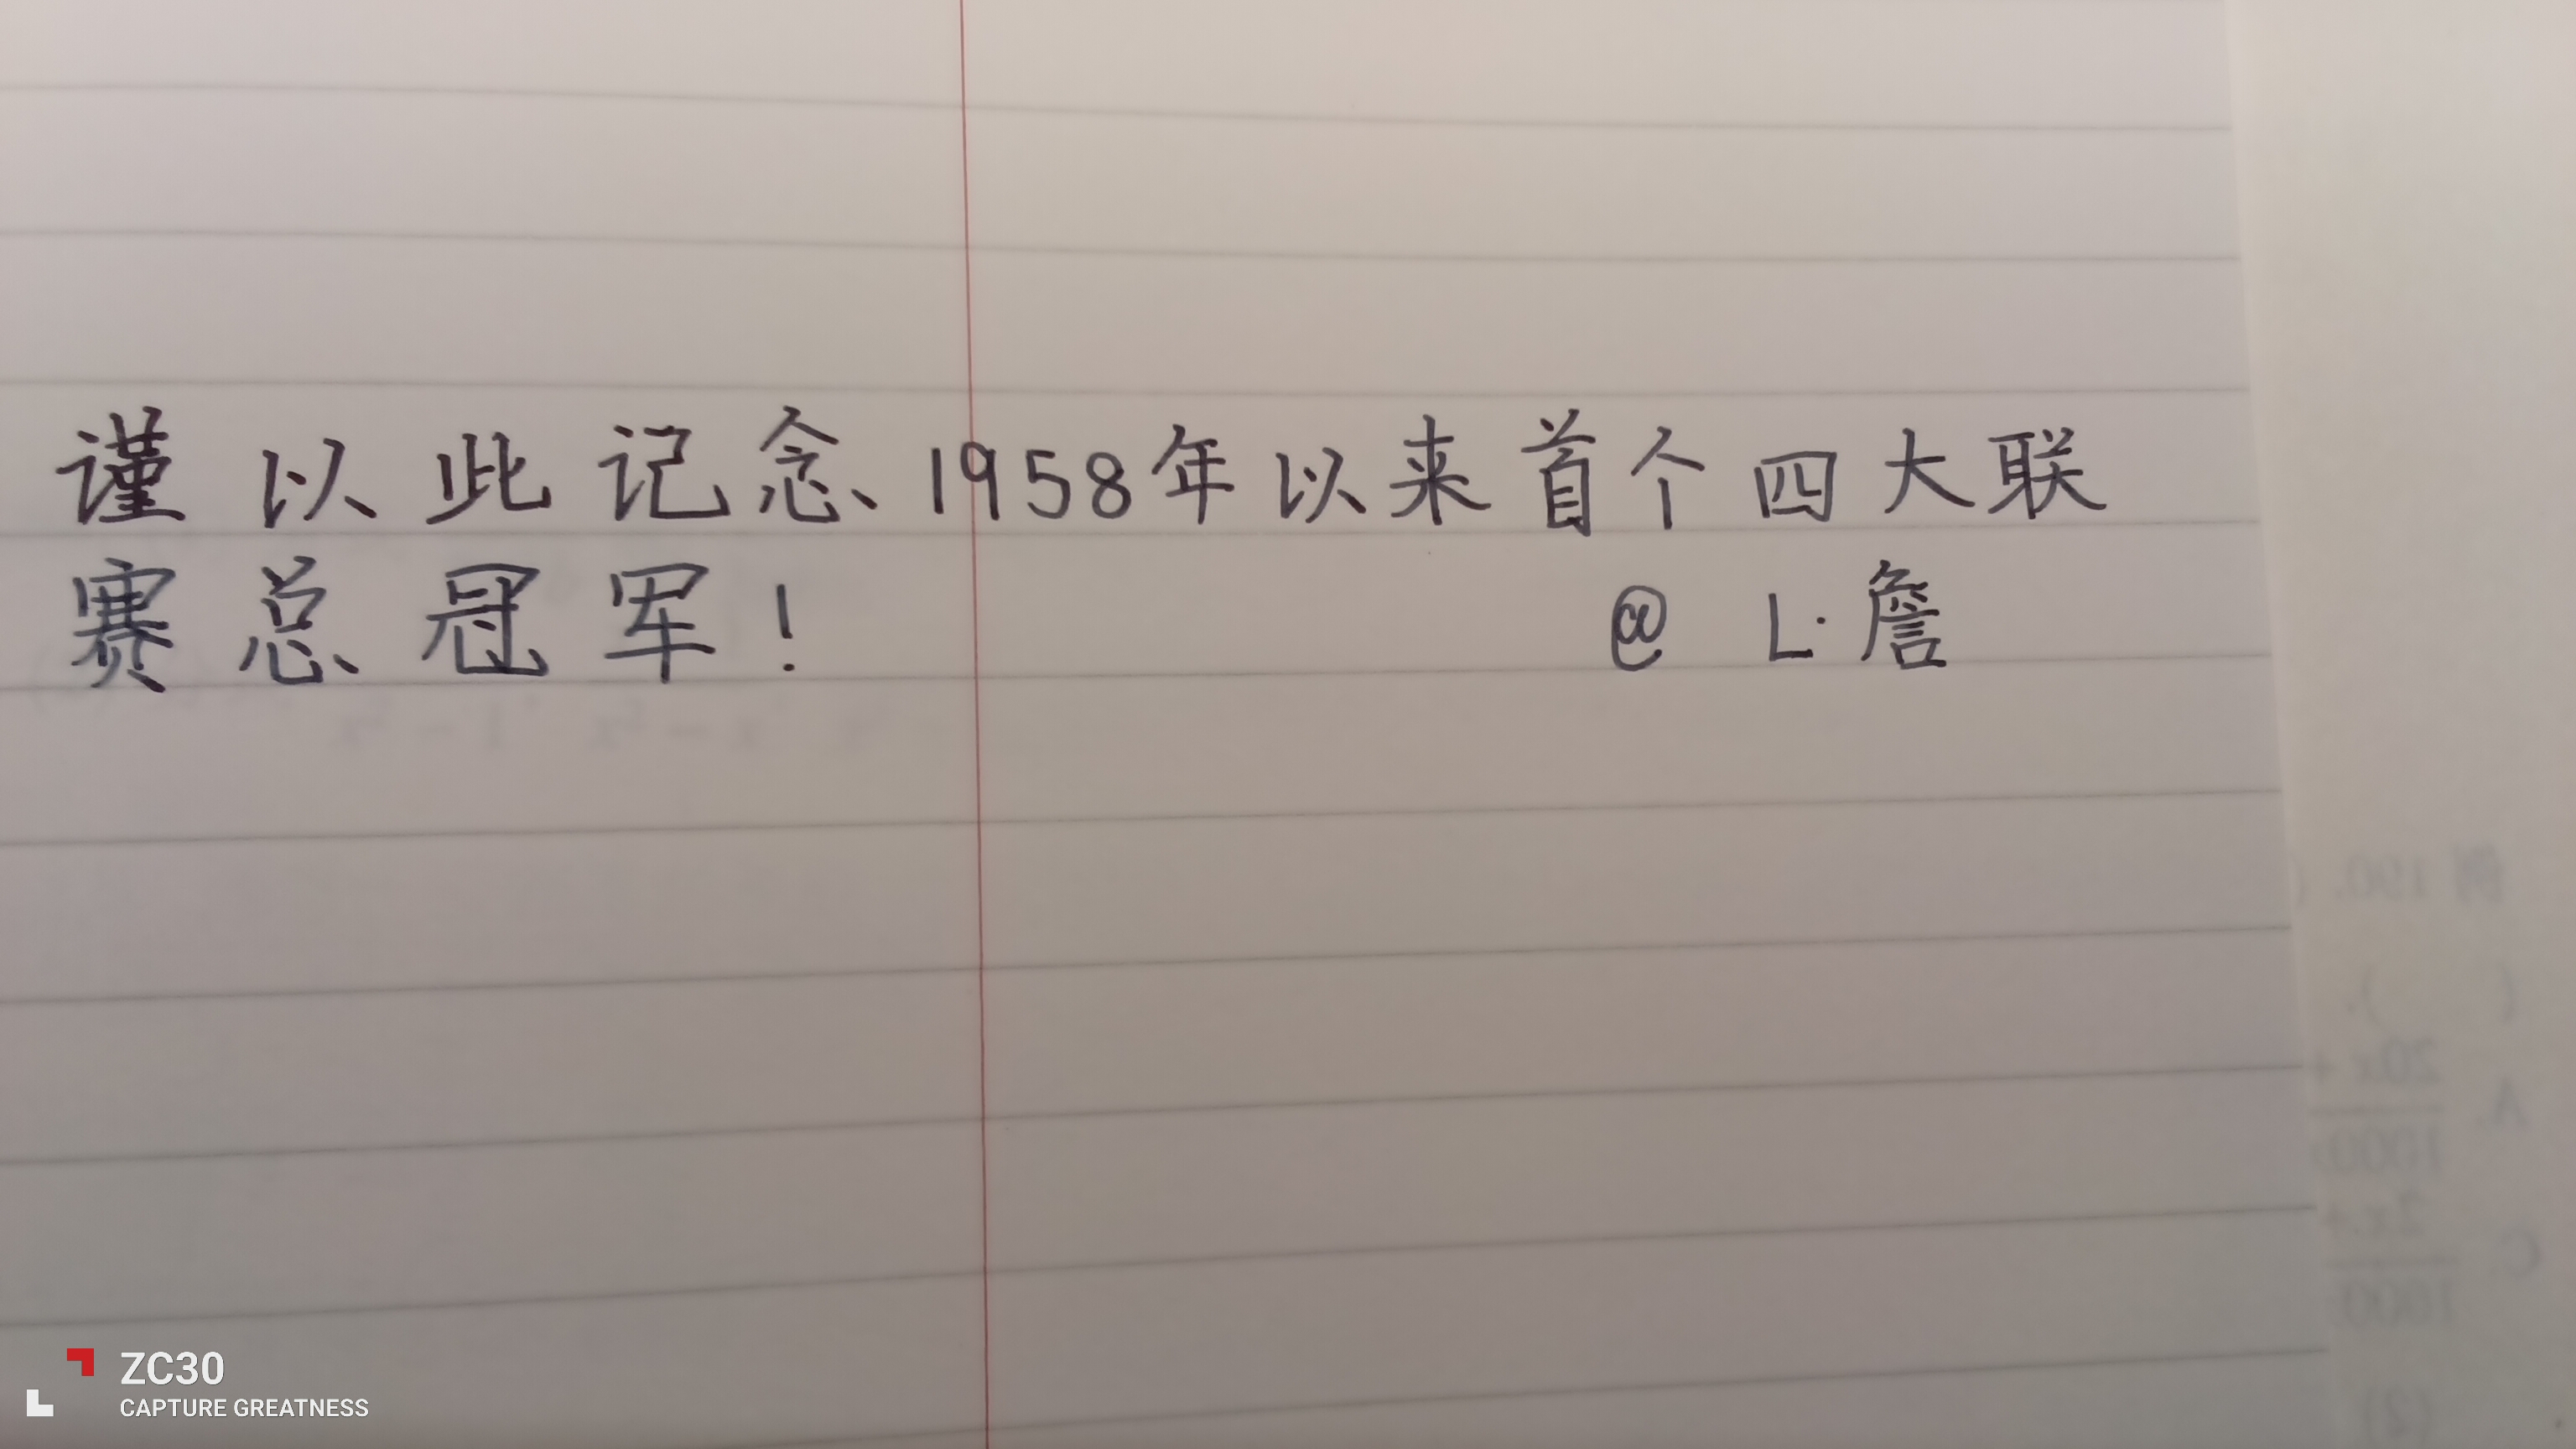 谨以此记念1958年以来首个四大联
赛总冠军!
@ L·詹
ZC30
CAPTURE GREATNESS